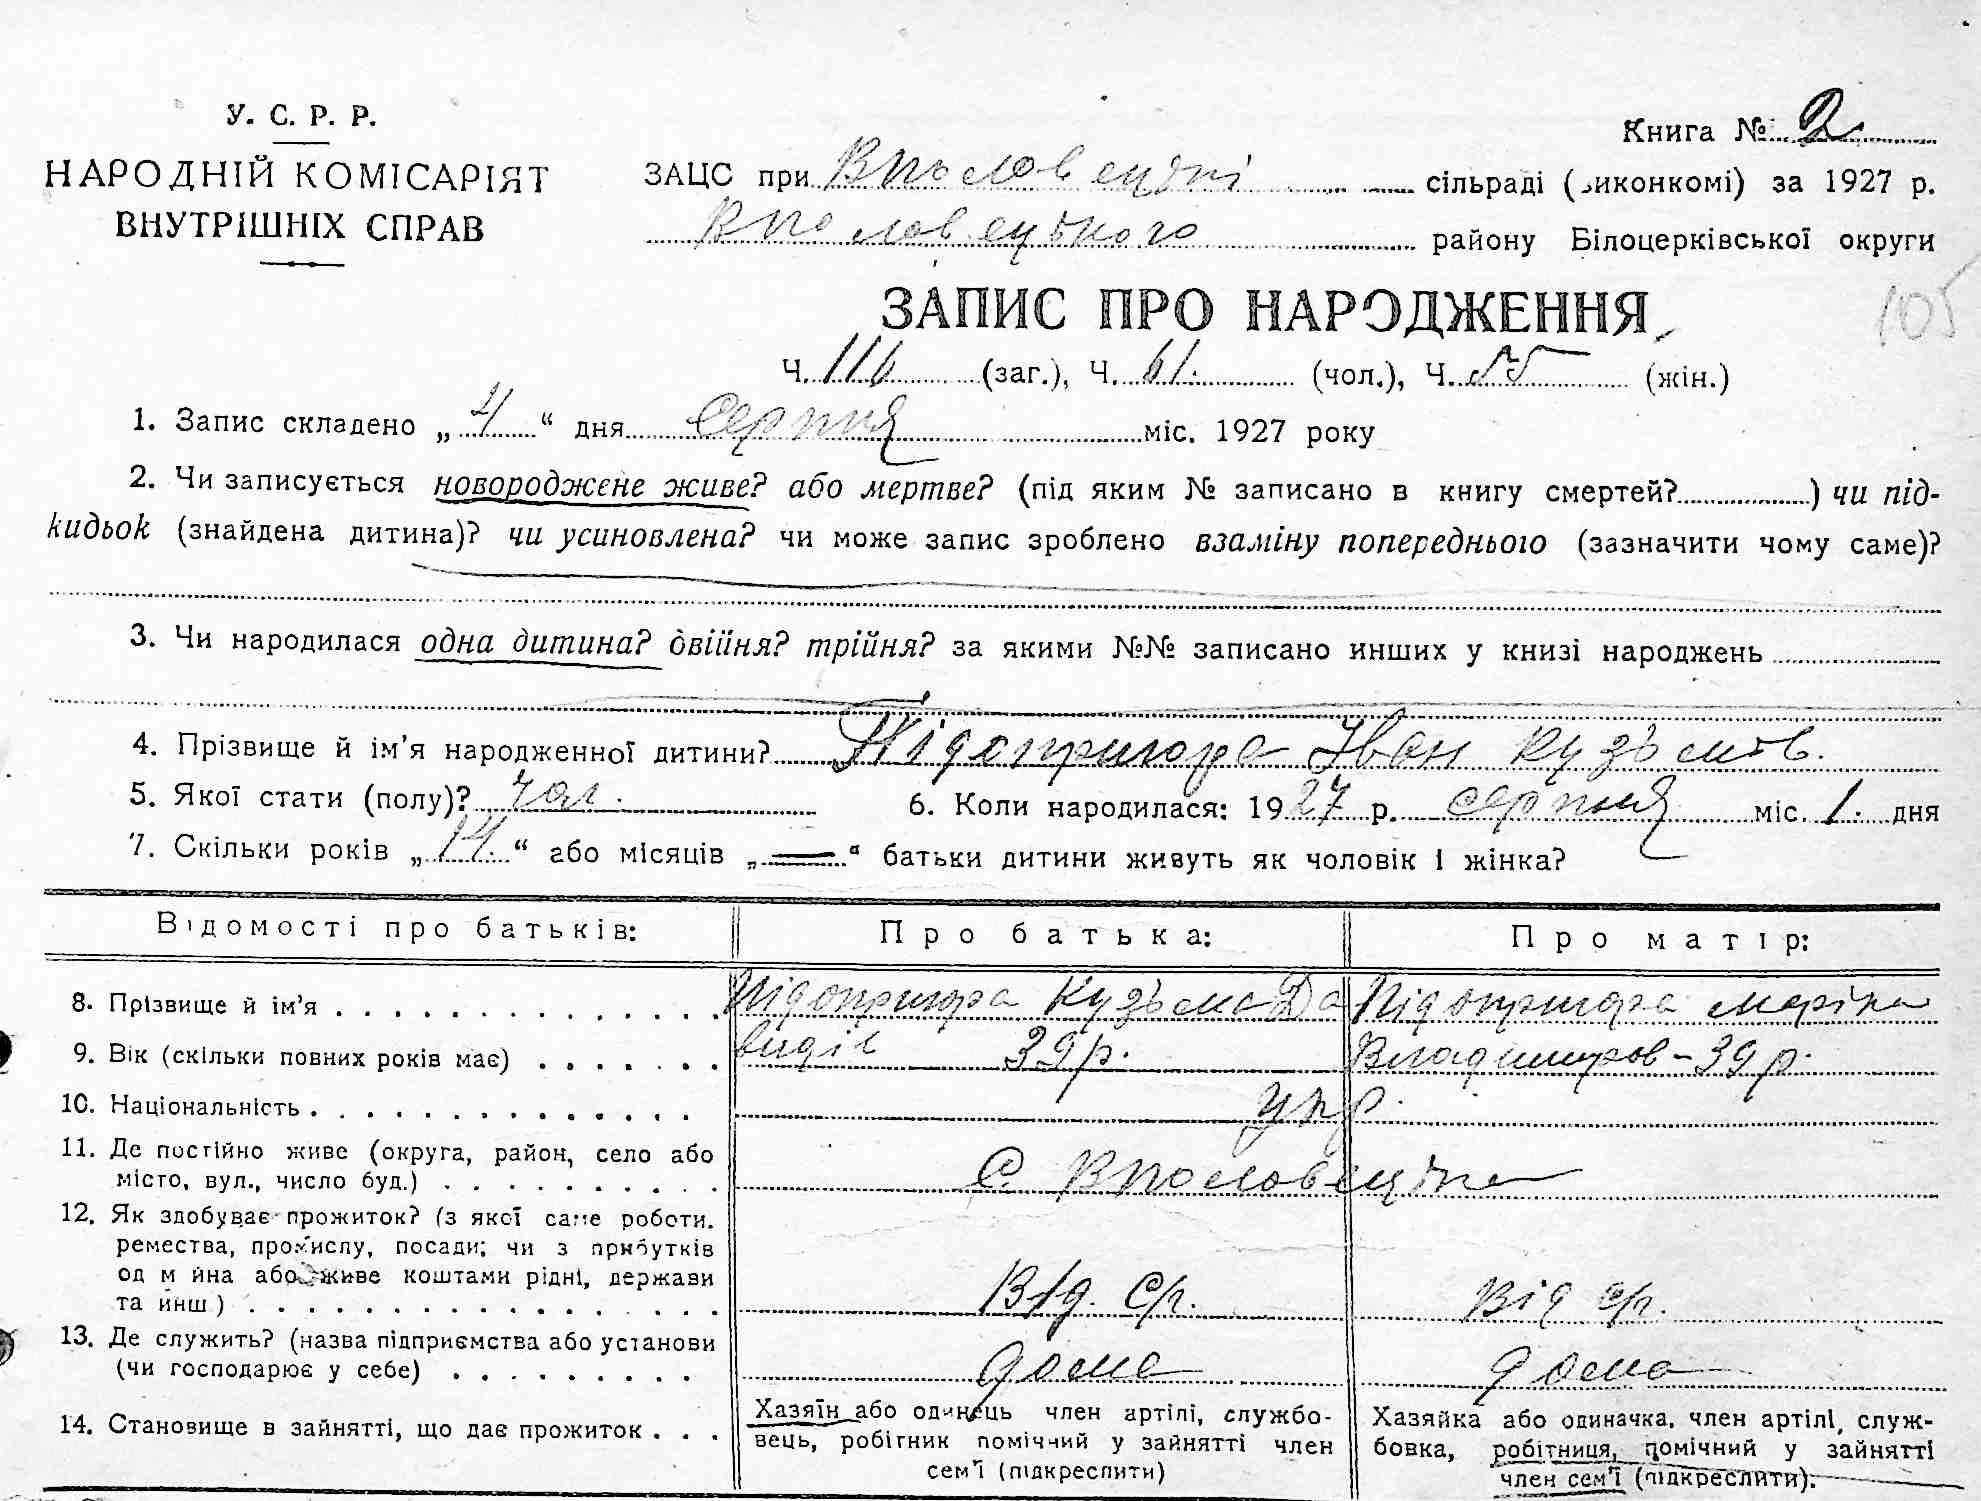 У. С. Р. Р.
НАРОДНІЙ КОМІСАРІЯТ
ВНУТРІШНІХ СПРАВ
Книга № 2
ЗАЦС при сільраді (виконкомі) за 1927 р.
району Білоцерківської округи
105
ЗАПИС ПРО НАРОДЖЕННЯ
Ч. 116 (заг.), Ч. 61. (чол.), Ч. 55 (жін.)
1. Запис складено „ 4 “ дня серпня міс. 1927 року
2. Чи записується новороджене живе? або мертве? (під яким № записано в книгу смертей?) чи під-
кидьок (знайдена дитина)? чи усиновлена? чи може запис зроблено взаміну попереднього (зазначити чому саме)?
3. Чи народилася одна дитина? двійня? трійня? за якими №№ записано инших у книзі народжень
4. Прізвище й ім’я народженної дитини? Підопригора Іван Кузьмів.
5. Якої стати (полу)? чол. 6. Коли народилася: 1927 р. серпня міс. 1. дня
7. Скільки років „ 14. “ або місяців „ — “ батьки дитини живуть як чоловік і жінка?
Відомості про батьків: Про батька: Про матір:
8. Прізвище й ім’я Підопригора Кузьма Да Підопригора Маріна
9. Вік (скільки повних років має) видів 39 р. Владимиров – 39 р.
10. Національність укр.
11. Де постійно живе (округа, район, село або
місто, вул., число буд.) С.
12. Як здобуває прожиток? (з якої саме роботи,
ремества, промислу, посади; чи з прибутків
од майна або живе коштами рідні, держави
та инш.) Від. с/г. Від с/г.
13. Де служить? (назва підприємства або установи
(чи господарює у себе) дома дома
14. Становище в зайнятті, що дає прожиток
Хазяїн або одинець член артілі, службо-
вець, робітник помічний у зайнятті член
сем’ї (підкреслити)
Хазяйка або одиначка, член артілі, служ-
бовка, робітниця, помічний у зайнятті
член сем’ї (підкреслити).